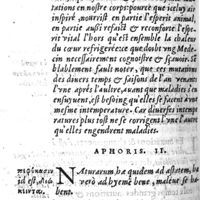 tations en nostre corps: pource que icluy air
inspiré, nourrist en partie l'esprit animal,
en partie aussi refaict & reconforte l'es-
prit vital lors qu'il ensemble la chaleur
du cœur refrigere: ce que doubt vng Mede-
cin necessairement cognoistre & sçauoir. Se
blablement fault noter, que ces mutations
des diuers temps & saisons de l'an venant
l'vne apres l'autre, auant que maladies s'en
ensuyuent, soit besoing qu'elles excedent à no
mesme intemperature. Car diuerses intempe
ratures plus tost se corrigent l'vne l'autre
qu'elles engendrent maladies.
APHORIS. II.
NAturarum hæ quidem ad æstatem, hæ
verò ad hyemē bene, malè ue se ha-
bent.
id est,